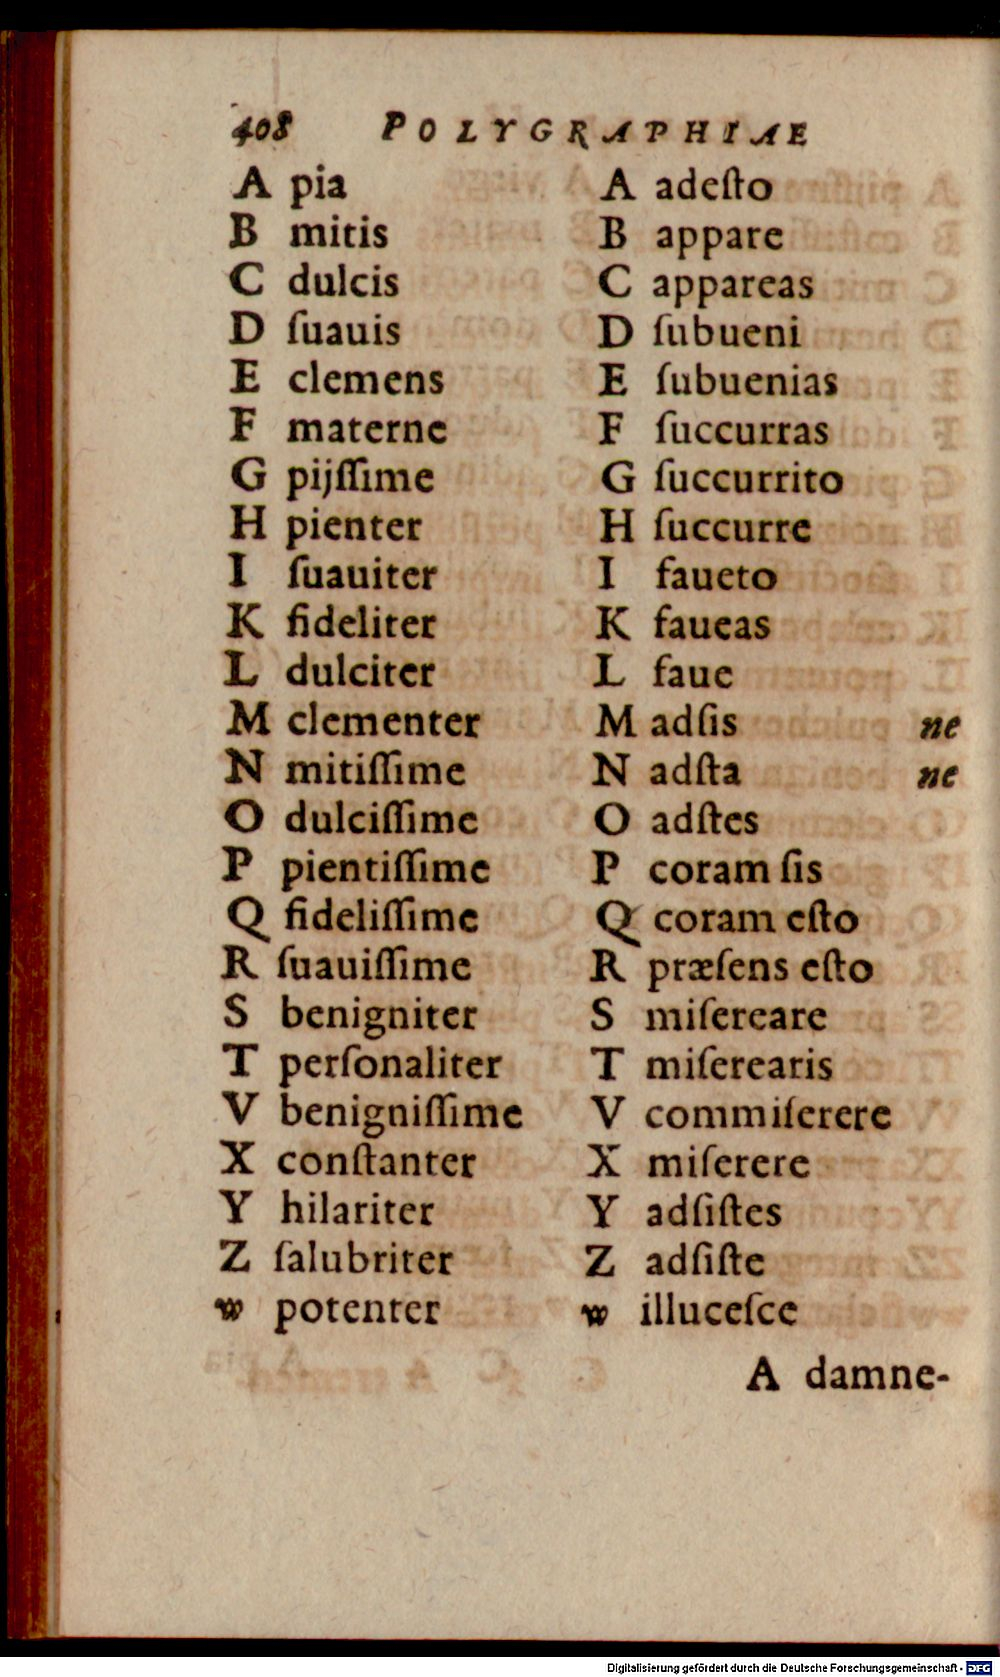 408 POLYGRAPHIAE
A pia
B mitis
C dulcis
D ſuauis
E clemens
F materne
G pijſſime
H pienter
I ſuauiter
K fideliter
L dulciter
M clementer
N mitiſſime
O dulciſſime
P pientiſſime
Q fideliſſime
R ſuauiſſime
S benigniter
T perſonaliter
V benigniſſime
X conſtanter
Y hilariter
Z ſalubriter
w potenter
A adeſto
B appare
C appareas
D ſubueni
E ſubuenias
F ſuccurras
G ſuccurrito
H ſuccurre
I faueto
K faueas
L faue
M adſis ne
N adſta ne
O adſtes
P coram ſis
Q coram eſto
R præſens eſto
S miſereare
T miſerearis
V commiſerere
X miſerere
Y adſiſtes
Z adſiſte
w illuceſce
A damne-
Digitalisierung gefördert durch die Deutsche Forschungsgemeinschaft - DFG